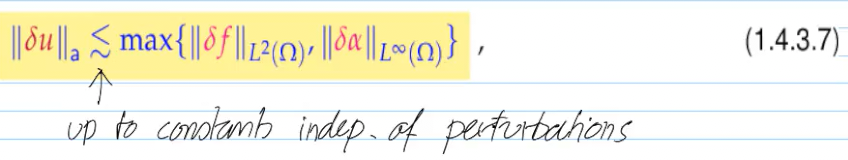 ‖δu‖ₐ ≲ max{‖δf‖_{L²(Ω)}, ‖δα‖_{L^∞(Ω)}} , (1.4.3.7)
up to constants indep. of perturbations